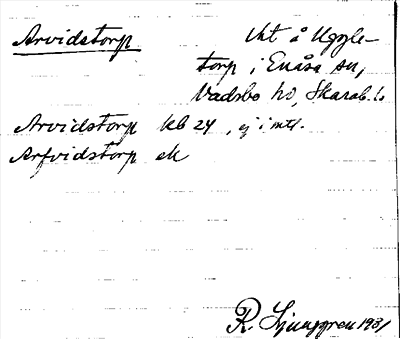 Arvidstorp Vkt å Uggle-
torp i Enåsa sn,
Vadsbo hd, Skarab. l.
Arvidstorp kb 24, ej i mtl.
Arfvidstorp ek
R. Ljunggren 1931